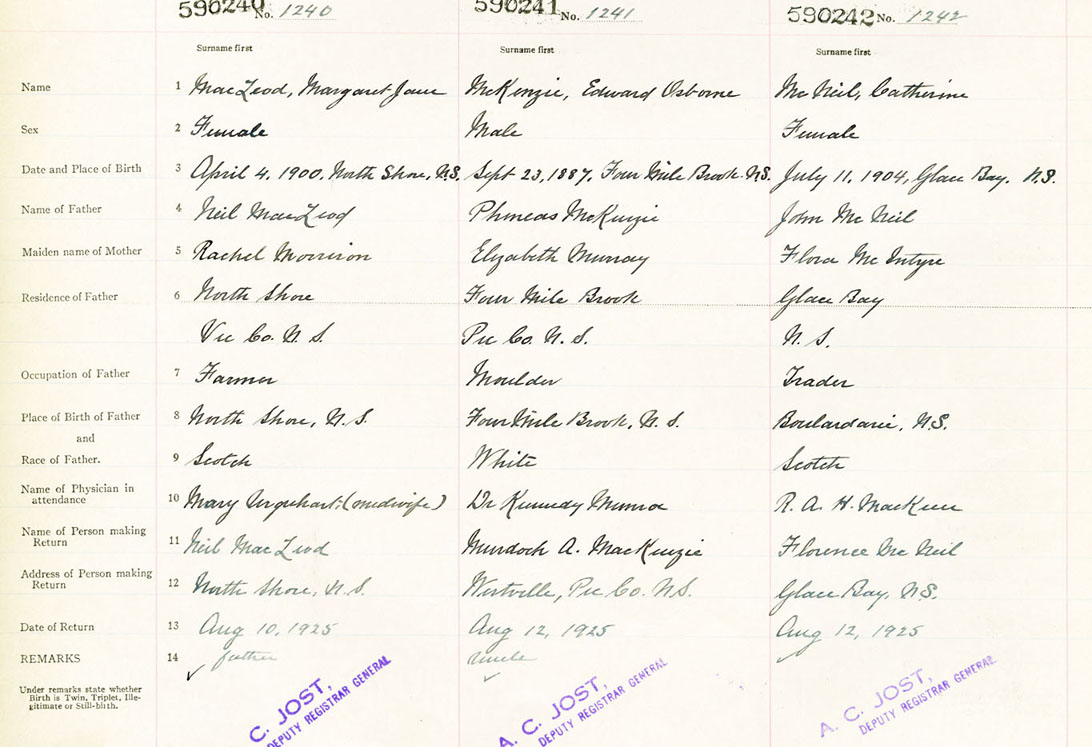 590240 No. 1240 590241 No. 1241 590242 No. 1242
Surname first Surname first Surname first
Name 1 MacLeod, Margaret Jane McKenzie, Edward Osborne Mc Neil, Catherine
Sex 2 Female Male Female
Date and Place of Birth 3 April 4, 1900, North Shore, N.S. Sept 23, 1887, Four Mile Brook N.S. July 11, 1904, Glace Bay, N.S.
Name of Father 4 Neil MacLeod Phineas McKenzie John Mc Neil
Maiden name of Mother 5 Rachel Morrison Elizabeth Murray Flora Mc Intyre
Residence of Father 6 North Shore Four Mile Brook Glace Bay
Vic Co. N. S. Pic Co. N. S. N. S.
Occupation of Father 7 Farmer Moulder Trader
Place of Birth of Father 8 North Shore, N.S. Four Mile Brook, N. S. Boulardarie, N.S.
and
Race of Father. 9 Scotch White Scotch
Name of Physician in
attendance 10 Mary Urquhart (midwife) Dr Kennedy Munroe R. A. H. MacKeen
Name of Person making
Return 11 Neil MacLeod Murdoch A. MacKenzie Florence Mc Neil
Address of Person making
Return 12 North Shore, N.S. Westville, Pic Co. N.S. Glace Bay, N.S.
Date of Return 13 Aug 10, 1925 Aug 12, 1925 Aug 12, 1925
REMARKS 14 father uncle
Under remarks state whether
Birth is Twin, Triplet, Ille-
gitimate or Still-birth.
C. JOST, A. C. JOST, A. C. JOST,
DEPUTY REGISTRAR GENERAL DEPUTY REGISTRAR GENERAL DEPUTY REGISTRAR GENERAL